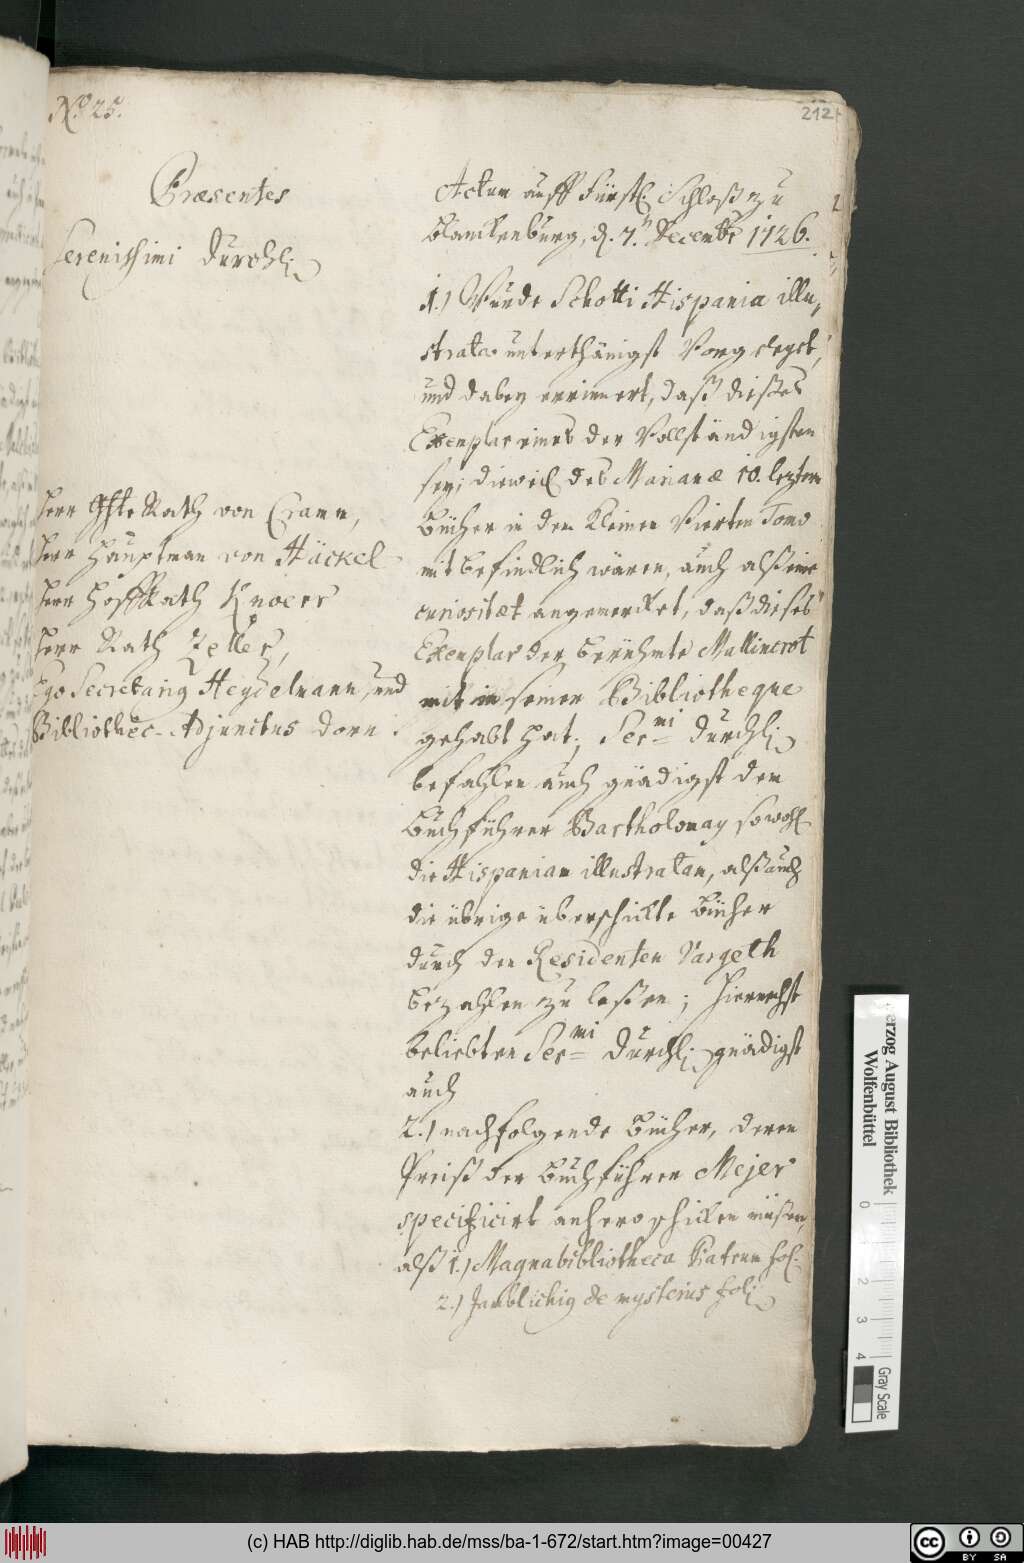 No. 25.
212
Præsentes
Serenissimi Durchl.
Herr Rath von Cramm,
Herr Hauptman von Häckel
Herr Hoff Rath Knoerr
Herr Rath Zeller,
Ego Secretarius Heydelmann, und
Bibliothec-Adjunctus Dorn
Actum auff Fürstl. Schloß zu
Blanckenburg, d. 7. Decembr 1726.
1.) Wurde Schotti Hispania illu-
strata unterthänigst vorgelegt,
und dabey erinnert, daß dießes
Exemplar eines der vollständigsten
sey, dieweil des Marianæ 10. lezten
Bücher in dem kleinen vierten Tomo
mit befindlich wären, auch alß eine
curiositæt angemercket, daß dieses
Exemplar der berühmte Mallincrot
mit in seiner Bibliotheque
gehabt hat; Ser.mi Durchl.
befahlen auch gnädigst dem
Buchführer Bartholomay sowohl
die Hispaniam illustratam, alß auch
die übrige überschickte Bücher
durch den Residenten Vargeth
bezahlen zu laßen; Hiernechst
beliebten Ser.mi Durchl. gnädigst
auch
2.) nachfolgende Bücher, deren
Preiß der Buchführer Mejer
specificirt anhero schicken müßen,
alß 1.) Magna bibliotheca Patrum fol.
2.) Jamblichus de mysteriis fol.
Herzog August Bibliothek
Wolfenbüttel
0
2
3
4
Gray Scale
(c) HAB http://diglib.hab.de/mss/ba-1-672/start.htm?image=00427
cc
BY
SA